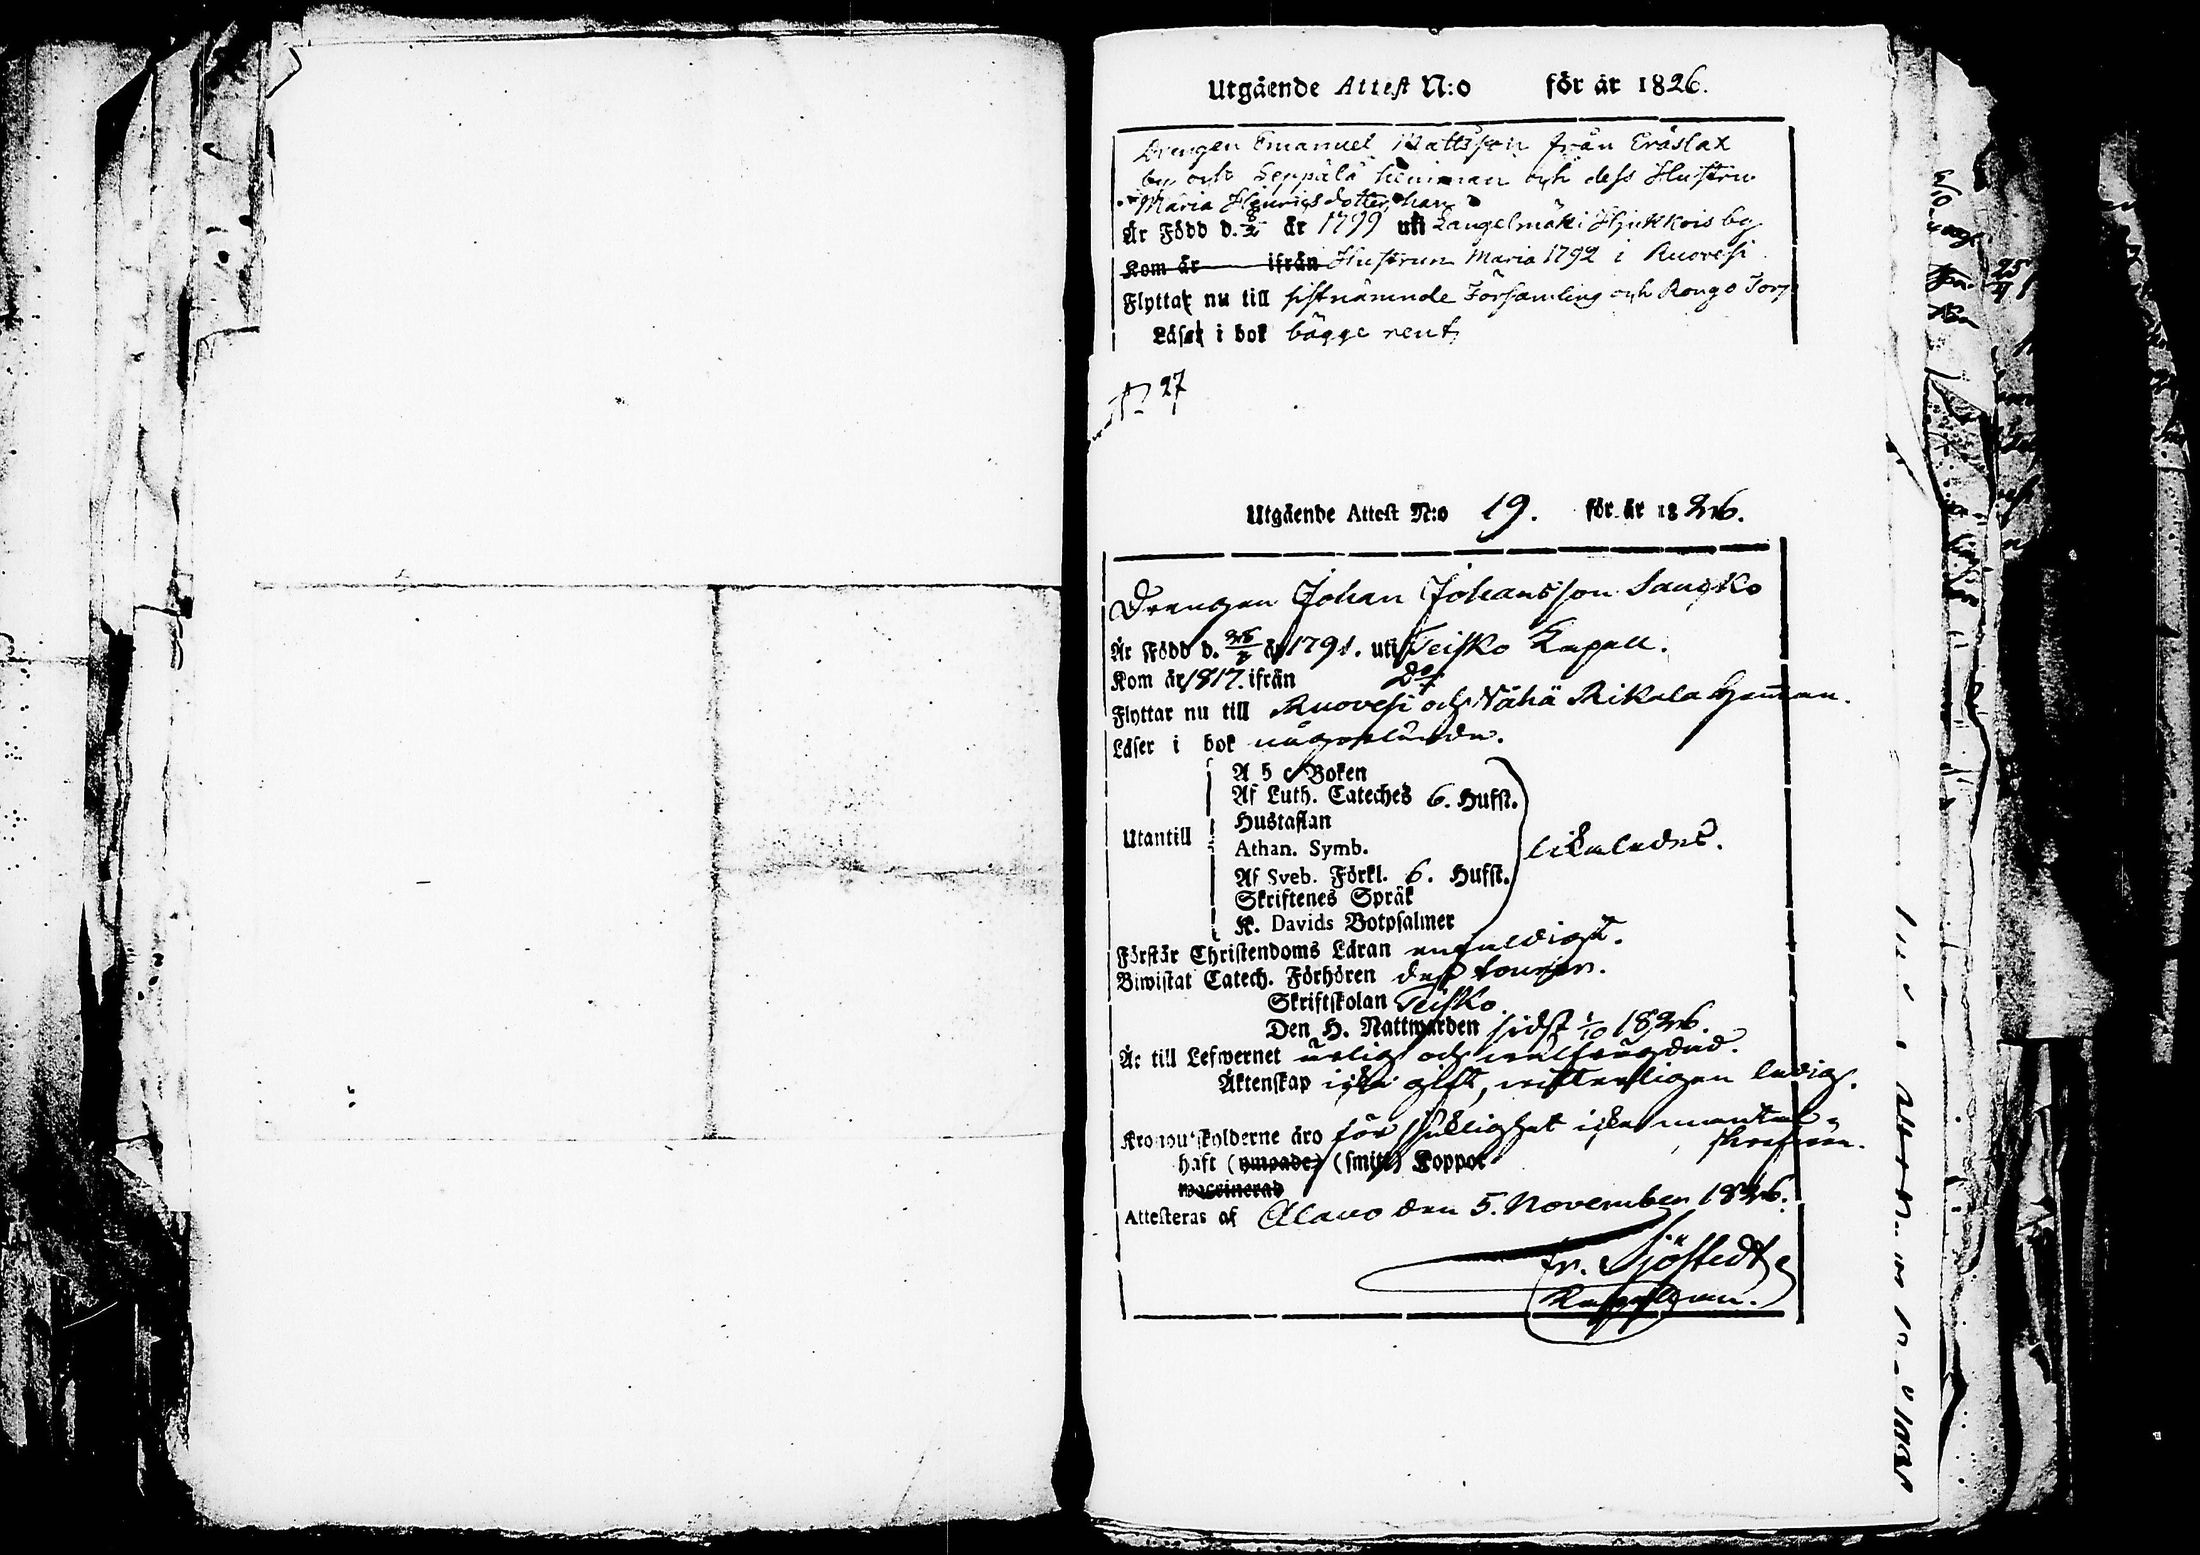 Utgående Attest N:o för år 1826.
Drengen Emanuel Mattsson från Eräslax
by och Seppälä hemman och dess Hustru
Maria Henricsdotter, han
Är Född d. år 1799 uti Längelmäki Hjukkois by
Kom år ifrån Hustrun Maria 1792 i Ruovesi
Flyttar nu till sistnämnde Församling och Rongo Torp
Läser i bok bägge rent
N 27
Utgående Attest N:o 19. för år 1826.
Drengen Johan Johansson
Är Född d. 26 år 1791. uti Teisko Kapell.
Kom år 1817. ifrån Do
Flyttar nu till Ruovesi och Vähä Mikala Hemman.
Läser i bok någorlunda.
A b c Boken
Af Luth. Cateches 6. Hufst.
Hustaflan
Utantill
Athan. Symb.
likaledes.
Af Sveb. Förkl. 6. Hufst.
Skriftenes Språk
K. Davids Botpsalmer
Förstår Christendoms Läran enfaldigt.
Biwistat Catech. Förhören
Skriftskolan Teisko
Den H. Nattwarden sidst 1/10 1826.
Är till Lefwernet ärlig och wälfrägdad.
Äktenskap icke gift, witterligen ledig.
Kronoutskylderne äro för sjuklighet icke mantals=
skrefven.
haft (ympade) (smitt) Koppor
waccinerad
Attesteras af Alavo den 5. November 1826.
Fr. Sjöstedt
Kapellan.